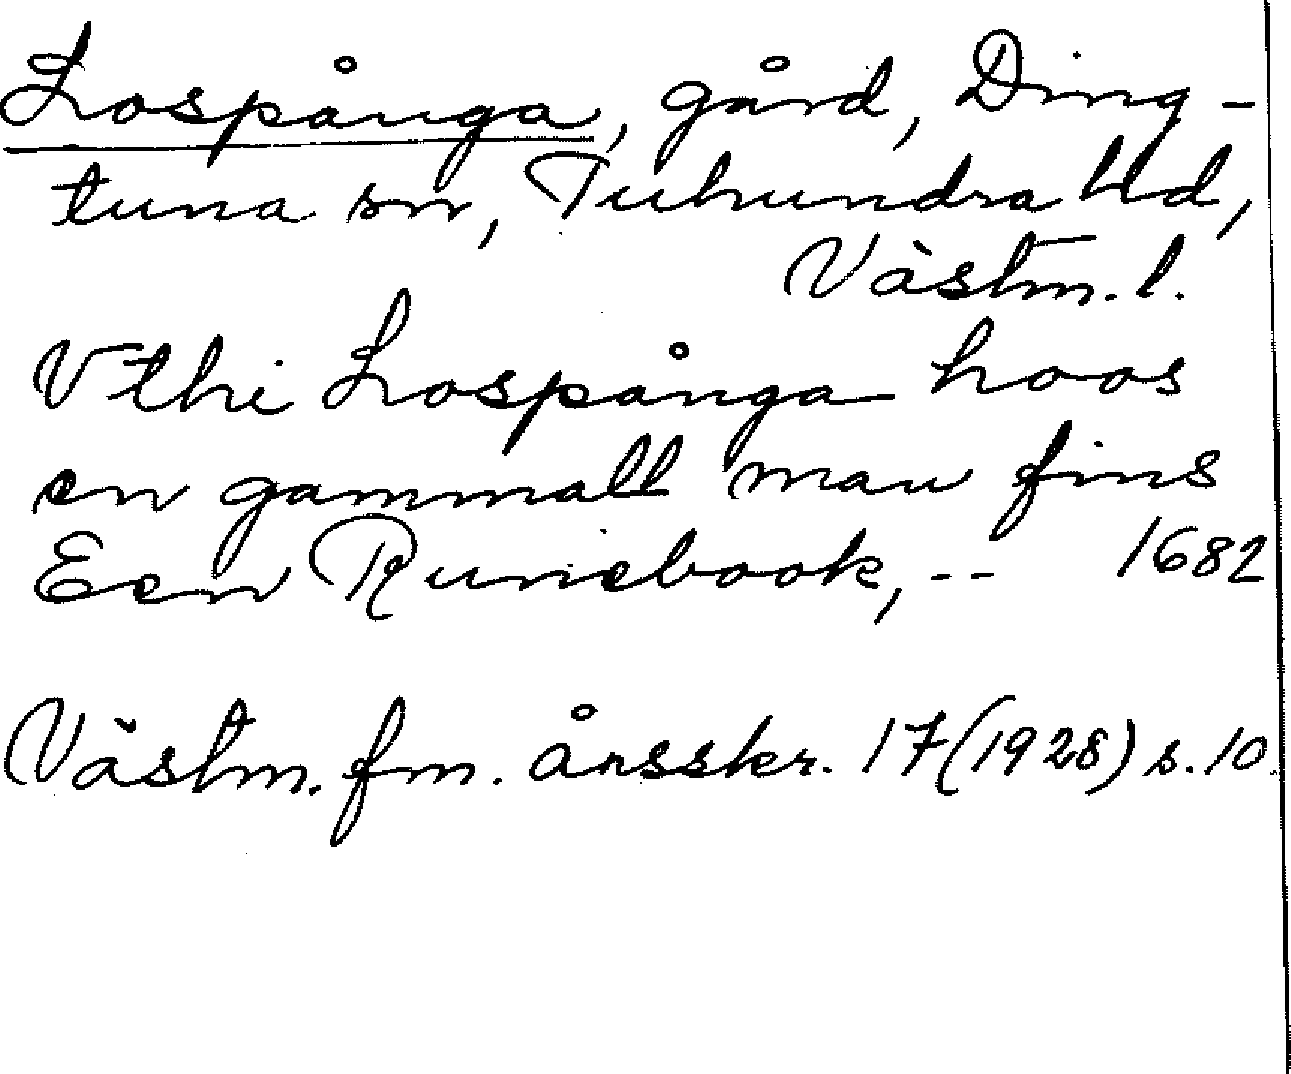 Lospånga, gård, Ding-
tuna sn, Tuhundra hd,
Västm. l.
Vthi Lospånga hoos
en gammall man fins
Een Runebook, -- 1682
Västm. fm. årsskr. 17 (1928) s. 10.